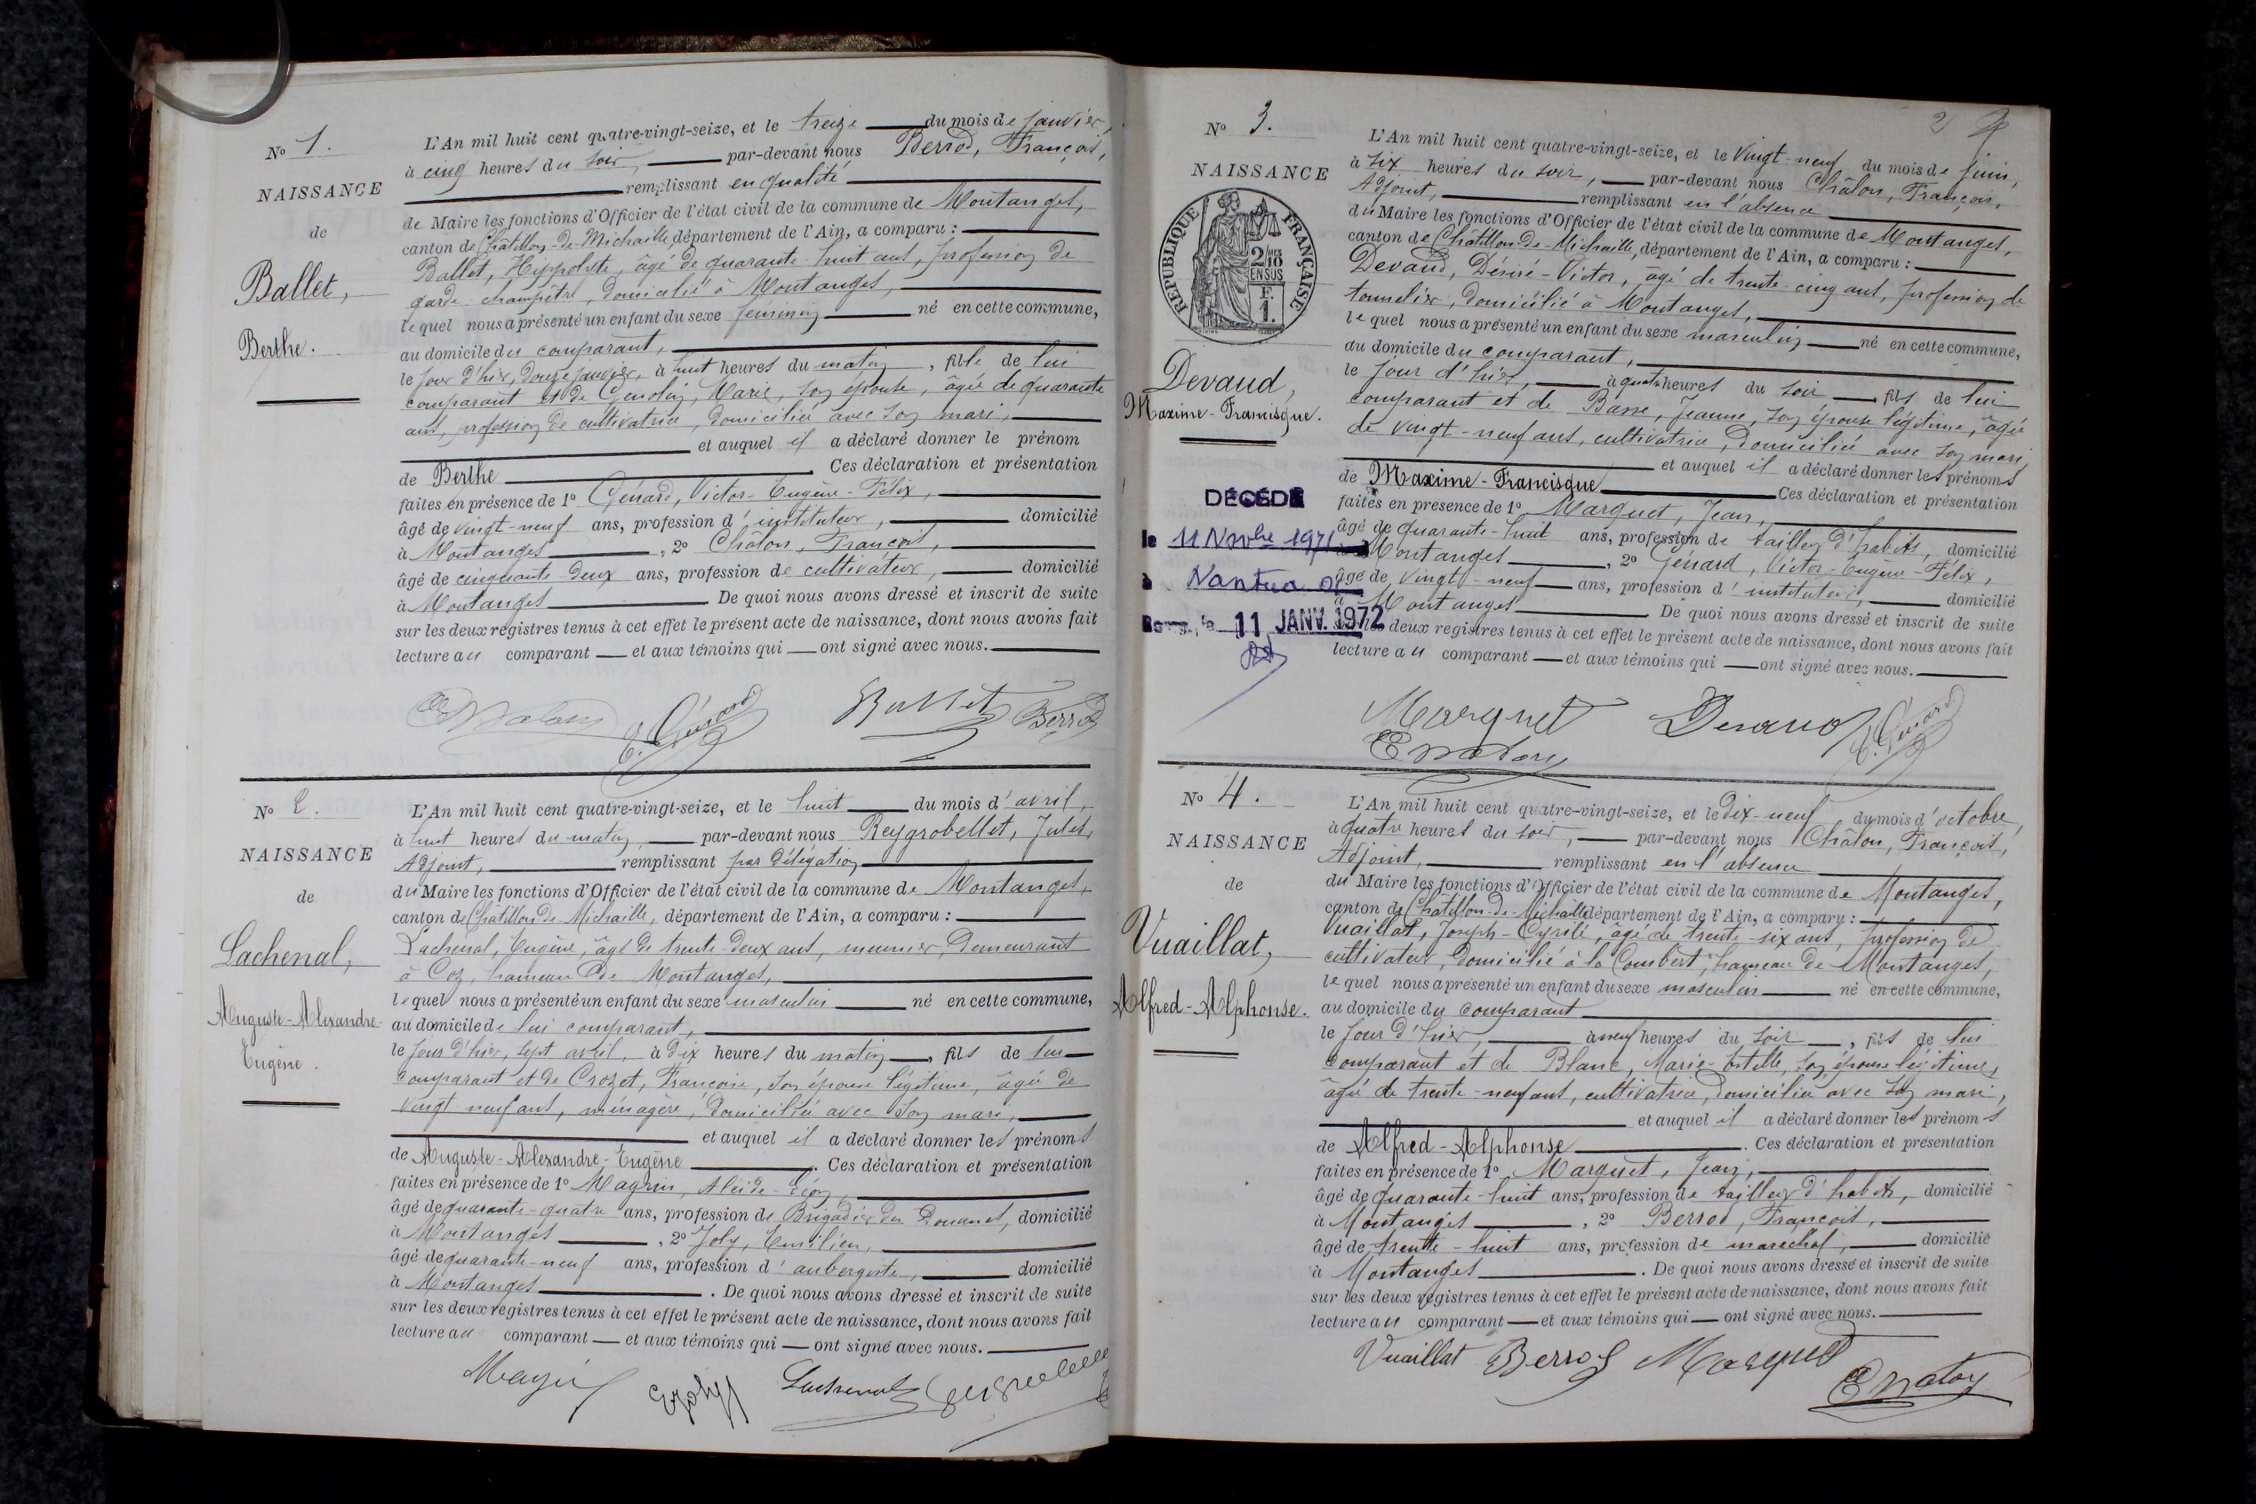 No 1.
NAISSANCE
de
Ballet,
Berthe.
L'An mil huit cent quatre-vingt-seize, et le treize du mois de janvier,
à cinq heures du soir, par-devant nous Berrod, François,
remplissant en qualité
de Maire les fonctions d'Officier de l'état civil de la commune de Montanges,
canton de Châtillon-de-Michaille, département de l'Ain, a comparu :
Ballet, Hyppolyte, âgé de quarante-huit ans, profession de
garde-champêtre, domicilié à Montanges,
lequel nous a présenté un enfant du sexe féminin né en cette commune,
au domicile du comparant,
le jour d'hier, douze janvier, à huit heures du matin, fille de lui
comparant et de Gendin, Marie, son épouse, âgée de quarante
ans, profession de cultivatrice, domiciliée avec son mari,
et auquel il a déclaré donner le prénom
de Berthe Ces déclaration et présentation
faites en présence de 1o Génard, Victor-Eugène-Félix,
âgé de vingt-neuf ans, profession d'instituteur, domicilié
à Montanges, 2o Châlon, François,
âgé de cinquante-deux ans, profession de cultivateur, domicilié
à Montanges De quoi nous avons dressé et inscrit de suite
sur les deux registres tenus à cet effet le présent acte de naissance, dont nous avons fait
lecture au comparant et aux témoins qui ont signé avec nous.
E. Génard Ballet Berrod
No 2.
NAISSANCE
de
Lachenal,
Auguste-Alexandre-
Eugène.
L'An mil huit cent quatre-vingt-seize, et le huit du mois d'avril,
à huit heures du matin, par-devant nous Reygrobellet, Jules,
Adjoint, remplissant par délégation
du Maire les fonctions d'Officier de l'état civil de la commune de Montanges,
canton de Châtillon-de-Michaille, département de l'Ain, a comparu :
Lachenal, Eugène, âgé de trente-deux ans, meunier, demeurant
à Coz, hameau de Montanges,
lequel nous a présenté un enfant du sexe masculin né en cette commune,
au domicile de lui comparant,
le jour d'hier, sept avril, à dix heures du matin, fils de lui
comparant et de Crozet, Françoise, son épouse légitime, âgée de
vingt neuf ans, ménagère, domiciliée avec son mari,
et auquel il a déclaré donner les prénoms
de Auguste-Alexandre-Eugène. Ces déclaration et présentation
faites en présence de 1o Magnin, Alcide-Léon,
âgé de quarante-quatre ans, profession de Brigadier des Douanes, domicilié
à Montanges, 2o Joly, Emilien,
âgé de quarante-neuf ans, profession d'aubergiste, domicilié
à Montanges. De quoi nous avons dressé et inscrit de suite
sur les deux registres tenus à cet effet le présent acte de naissance, dont nous avons fait
lecture au comparant et aux témoins qui ont signé avec nous.
E Joly Lachenal
2
No 3.
NAISSANCE
RÉPUBLIQUE FRANÇAISE
2/10 EN SUS
F.
1.
Devaud,
Maxime-Francisque.
DÉCÉDÉ
le 11 Novbre 1971
à Nantua 01
11 JANV. 1972
L'An mil huit cent quatre-vingt-seize, et le vingt-neuf du mois de juin,
à six heures du soir, par-devant nous Châlon, François,
Adjoint, remplissant en l'absence
du Maire les fonctions d'Officier de l'état civil de la commune de Montanges,
canton de Châtillon-de-Michaille, département de l'Ain, a comparu :
Devaud, Désiré-Victor, âgé de trente-cinq ans, profession de
tonnelier, domicilié à Montanges,
lequel nous a présenté un enfant du sexe masculin né en cette commune,
au domicile du comparant,
le jour d'hier, à quatre heures du soir, fils de lui
comparant et de Basse, Jeanne, son épouse légitime, âgée
de vingt-neuf ans, cultivatrice, domiciliée avec son mari,
et auquel il a déclaré donner les prénoms
de Maxime-Francisque Ces déclaration et présentation
faites en présence de 1o Marquet, Jean,
âgé de quarante-huit ans, profession de tailleur d'habits, domicilié
à Montanges, 2o Génard, Victor-Eugène-Félix,
âgé de vingt-neuf ans, profession d'instituteur, domicilié
à Montanges De quoi nous avons dressé et inscrit de suite
deux registres tenus à cet effet le présent acte de naissance, dont nous avons fait
lecture au comparant et aux témoins qui ont signé avec nous.
Marquet Devaud E. Génard
No 4.
NAISSANCE
de
Vuaillat,
Alfred-Alphonse.
L'An mil huit cent quatre-vingt-seize, et le dix-neuf du mois d'octobre,
à quatre heures du soir, par-devant nous Châlon, François,
Adjoint, remplissant en l'absence
du Maire les fonctions d'Officier de l'état civil de la commune de Montanges,
canton de Châtillon-de-Michaille département de l'Ain, a comparu :
Vuaillat, Joseph-Cyrile, âgé de trente-six ans, profession de
cultivateur, domicilié à la Combert, hameau de Montanges,
lequel nous a présenté un enfant du sexe masculin né en cette commune,
au domicile du comparant
le jour d'hier, à neuf heures du soir, fils de lui
comparant et de Blanc, Marie-Estelle, son épouse légitime,
âgée de trente-neuf ans, cultivatrice, domiciliée avec son mari,
et auquel il a déclaré donner les prénoms
de Alfred-Alphonse. Ces déclaration et présentation
faites en présence de 1o Marquet, Jean,
âgé de quarante-huit ans, profession de tailleur d'habits, domicilié
à Montanges, 2o Berrod, François,
âgé de trente-huit ans, profession de maréchal, domicilié
à Montanges. De quoi nous avons dressé et inscrit de suite
sur les deux registres tenus à cet effet le présent acte de naissance, dont nous avons fait
lecture au comparant et aux témoins qui ont signé avec nous.
Vuaillat Berrod Marquet